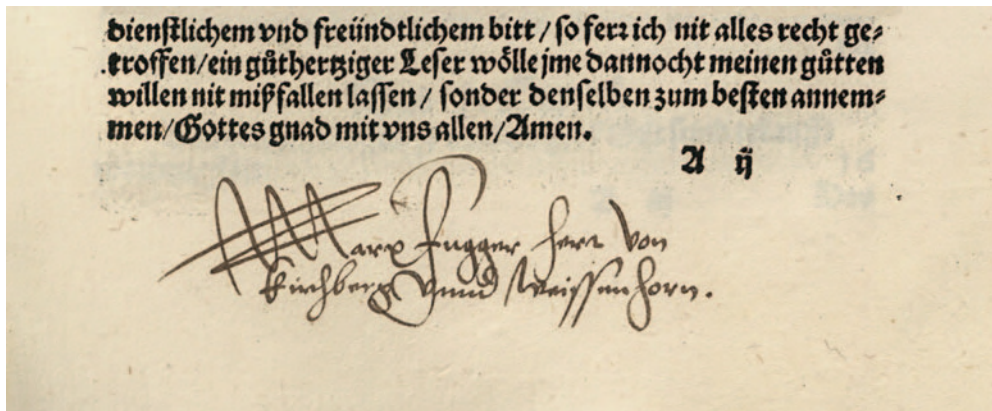 dienstlichem vnd freündtlichem bitt / so ferꝛ ich nit alles recht ge⸗
troffen / ein gůthertziger Leser wölle jme dannocht meinen gůtten
willen nit mißfallen lassen / sonder denselben zum besten annem⸗
men / Gottes gnad mit vns allen / Amen.
A ij
Marx Fugger herr von
Kirchberg vnnd Weissenhorn.